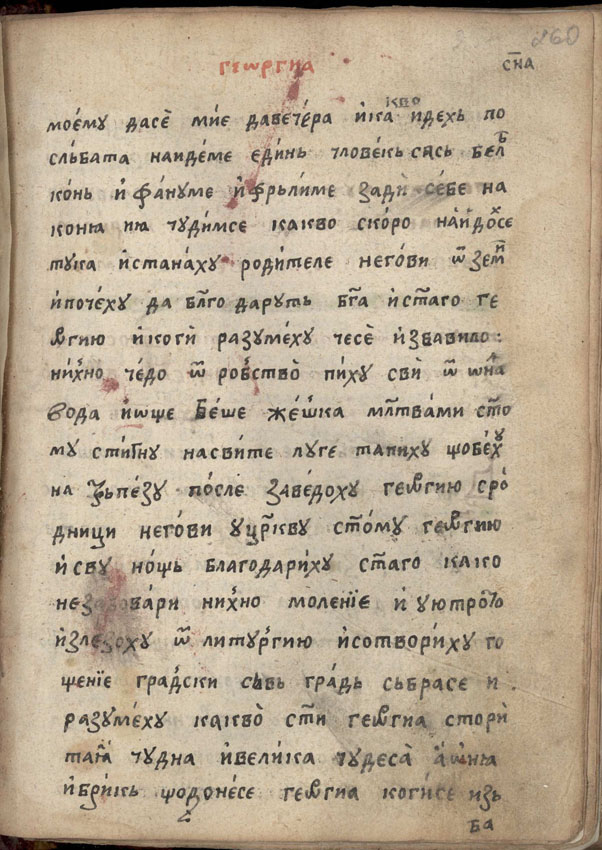 260
геѡргиа
сн҃а
моему̀ дасѐ мие давечѐра и҆какво и҆дехь по
сльбата наидеме единь чловекь сась бель
конь и҆ фа́нуме и҆ фрьлиме зади себе на
коню ми чудимсе какво скоро наидохсе
тука и҆станаху родителе негови ѿ земи
и҆почеху да бл҃годаруть бг҃а и҆ст҃аго ге
ѡргию и҆коги разумеху чесе и҆збавило:
нихно чедо ѿ робство̀ пиху сви ѿ ѡная
вода и҆ѡще беше жешка мл҃твами ст҃о
му стигну насвите луге тапиху щобеху
на трьпезу после заведоху геѡргию сро
дници негови у цр҃кву ст҃ому геѡргию
и҆ сву нощь благодариху ст҃аго како
незабовари нихно моленїе и҆ уютрото
и҆злезоху ѿ литургию и҆сотвориху го
щенїе градски сьвь градь сьбрасе и
разумеху какво̀ ст҃и геѡргиа стори
таия чудна и҆велика чудеса а҆ѡния
и҆брикь щодонесе геѡргиа когисе изь
ба